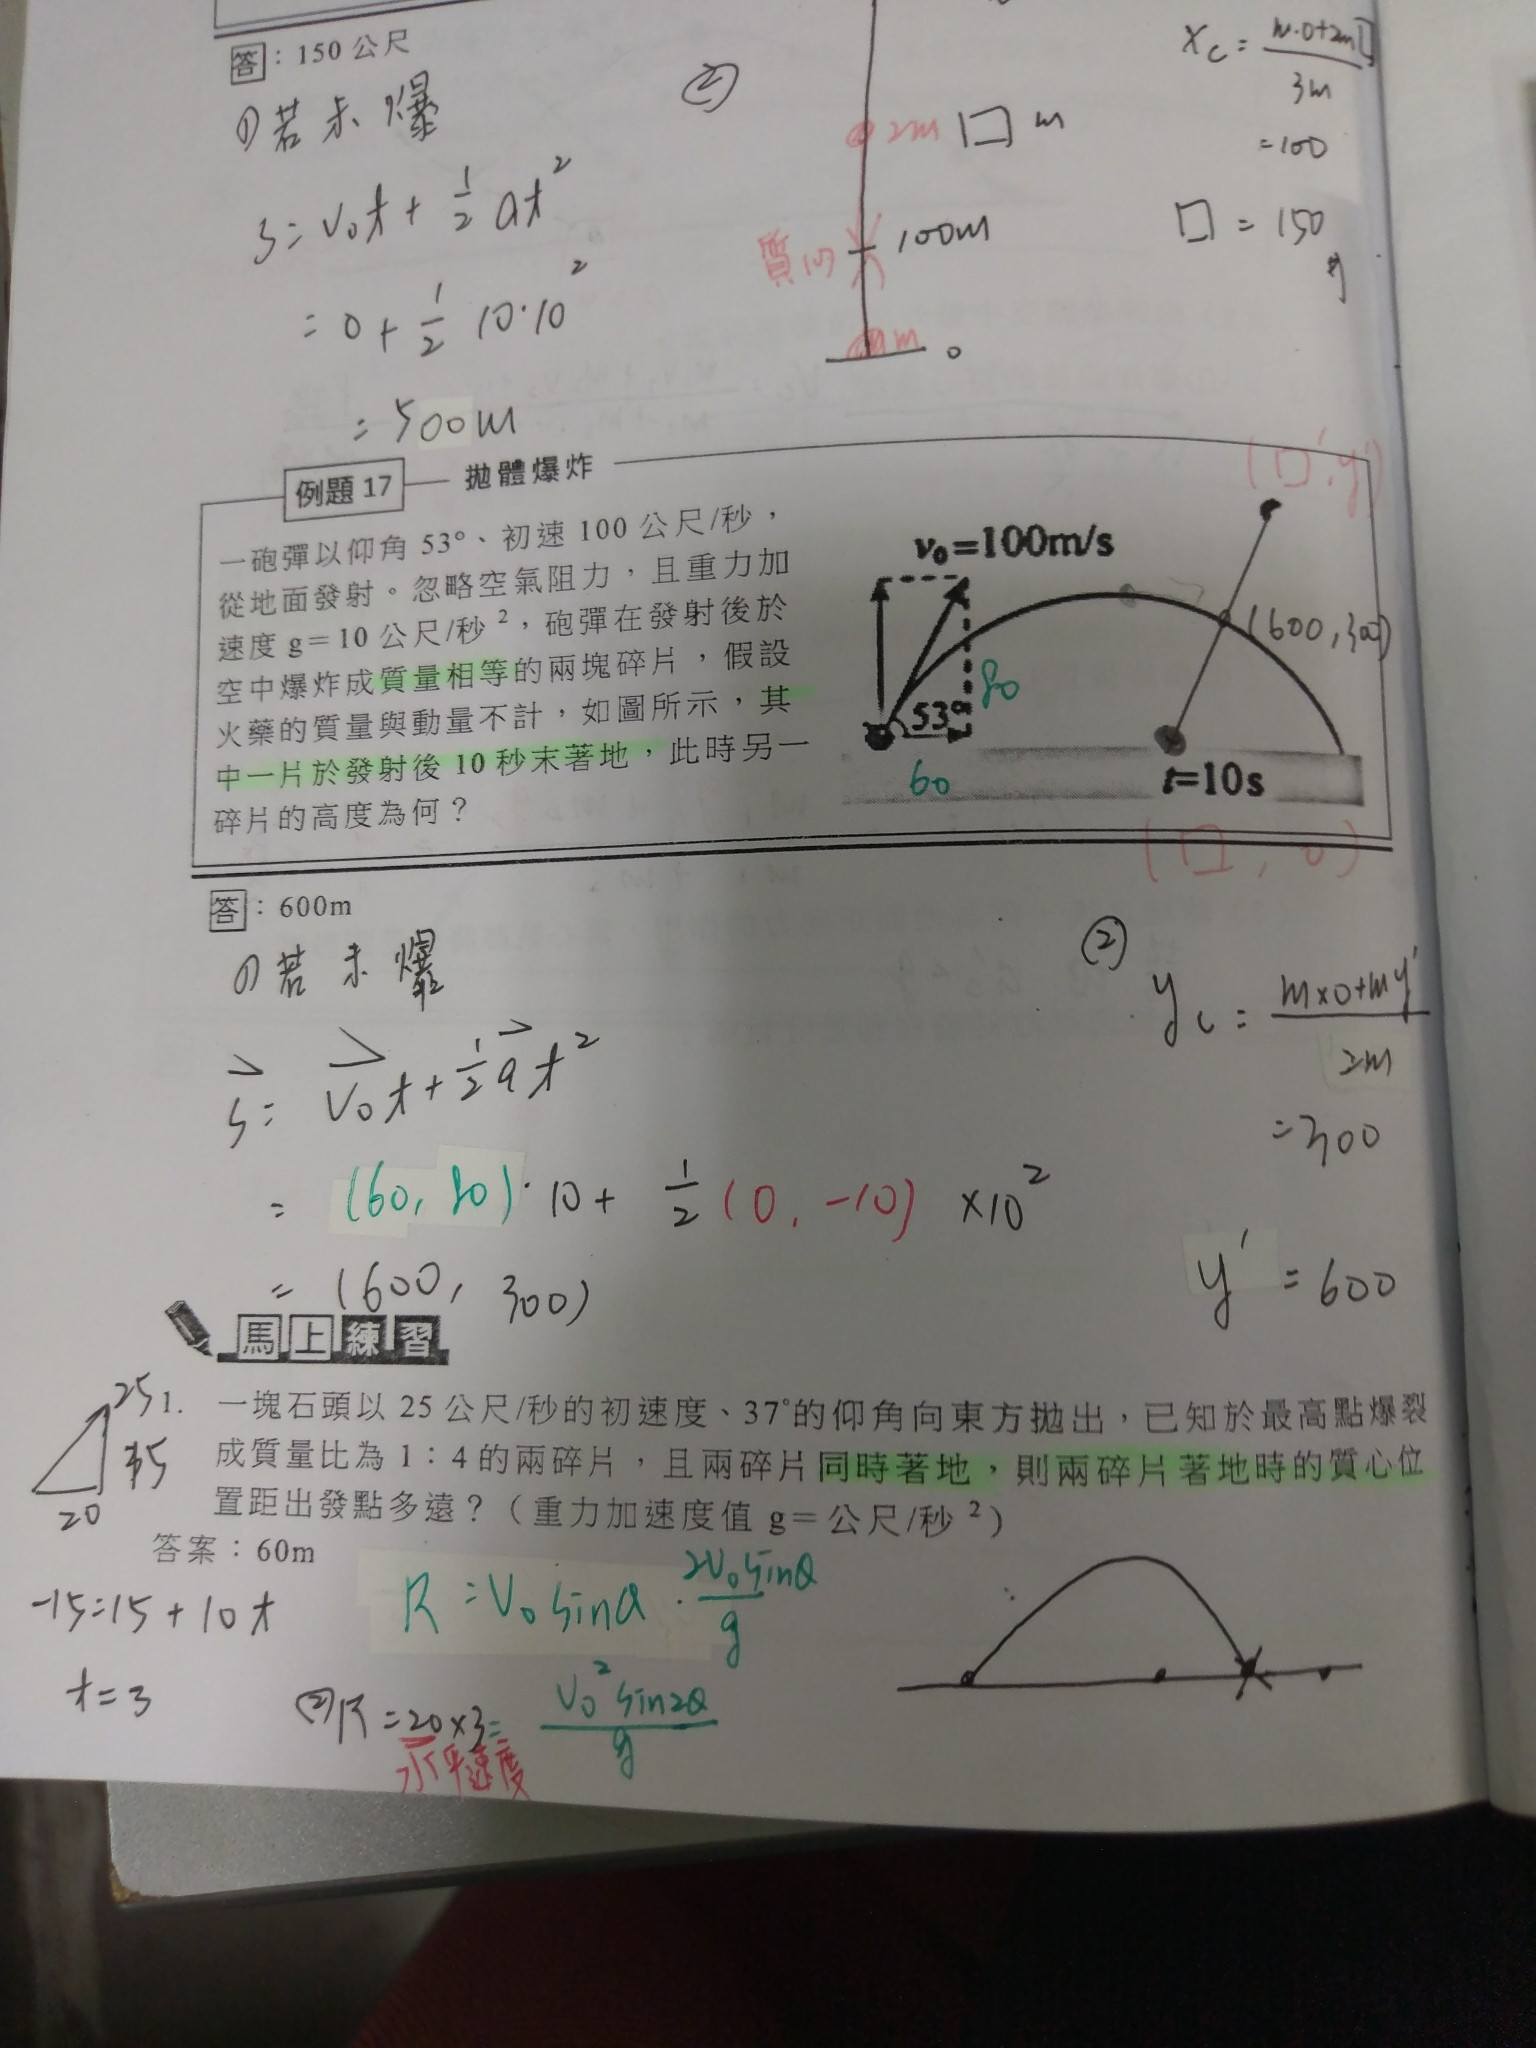 答：150公尺
①若未爆
S=V₀t+½at²
=0+½10·10²
=500m
②
2m □ m
質心 100m
m 0
Xc=(m·0+2m□)/3m
=100
□=150
例題17 拋體爆炸
一砲彈以仰角53°、初速100公尺/秒，
從地面發射。忽略空氣阻力，且重力加
速度g=10公尺/秒²，砲彈在發射後於
空中爆炸成質量相等的兩塊碎片，假設
火藥的質量與動量不計，如圖所示，其
中一片於發射後10秒末著地，此時另一
碎片的高度為何？
(□', y')
v₀=100m/s
(600, 300)
80
53°
60
t=10s
(□, 0)
答：600m
①若未爆
S=V₀t+½at²
=(60, 80)·10+½(0, -10)×10²
=(600, 300)
②
yc=(m×0+my')/2m
=300
y'=600
馬上練習
25
15
20
1. 一塊石頭以25公尺/秒的初速度、37°的仰角向東方拋出，已知於最高點爆裂
成質量比為1：4的兩碎片，且兩碎片同時著地，則兩碎片著地時的質心位
置距出發點多遠？（重力加速度值g=公尺/秒²）
答案：60m
-15=15+10t
t=3
R=V₀sinθ·2V₀sinθ/g
②R=20×3=V₀²sin2θ/g
水平速度